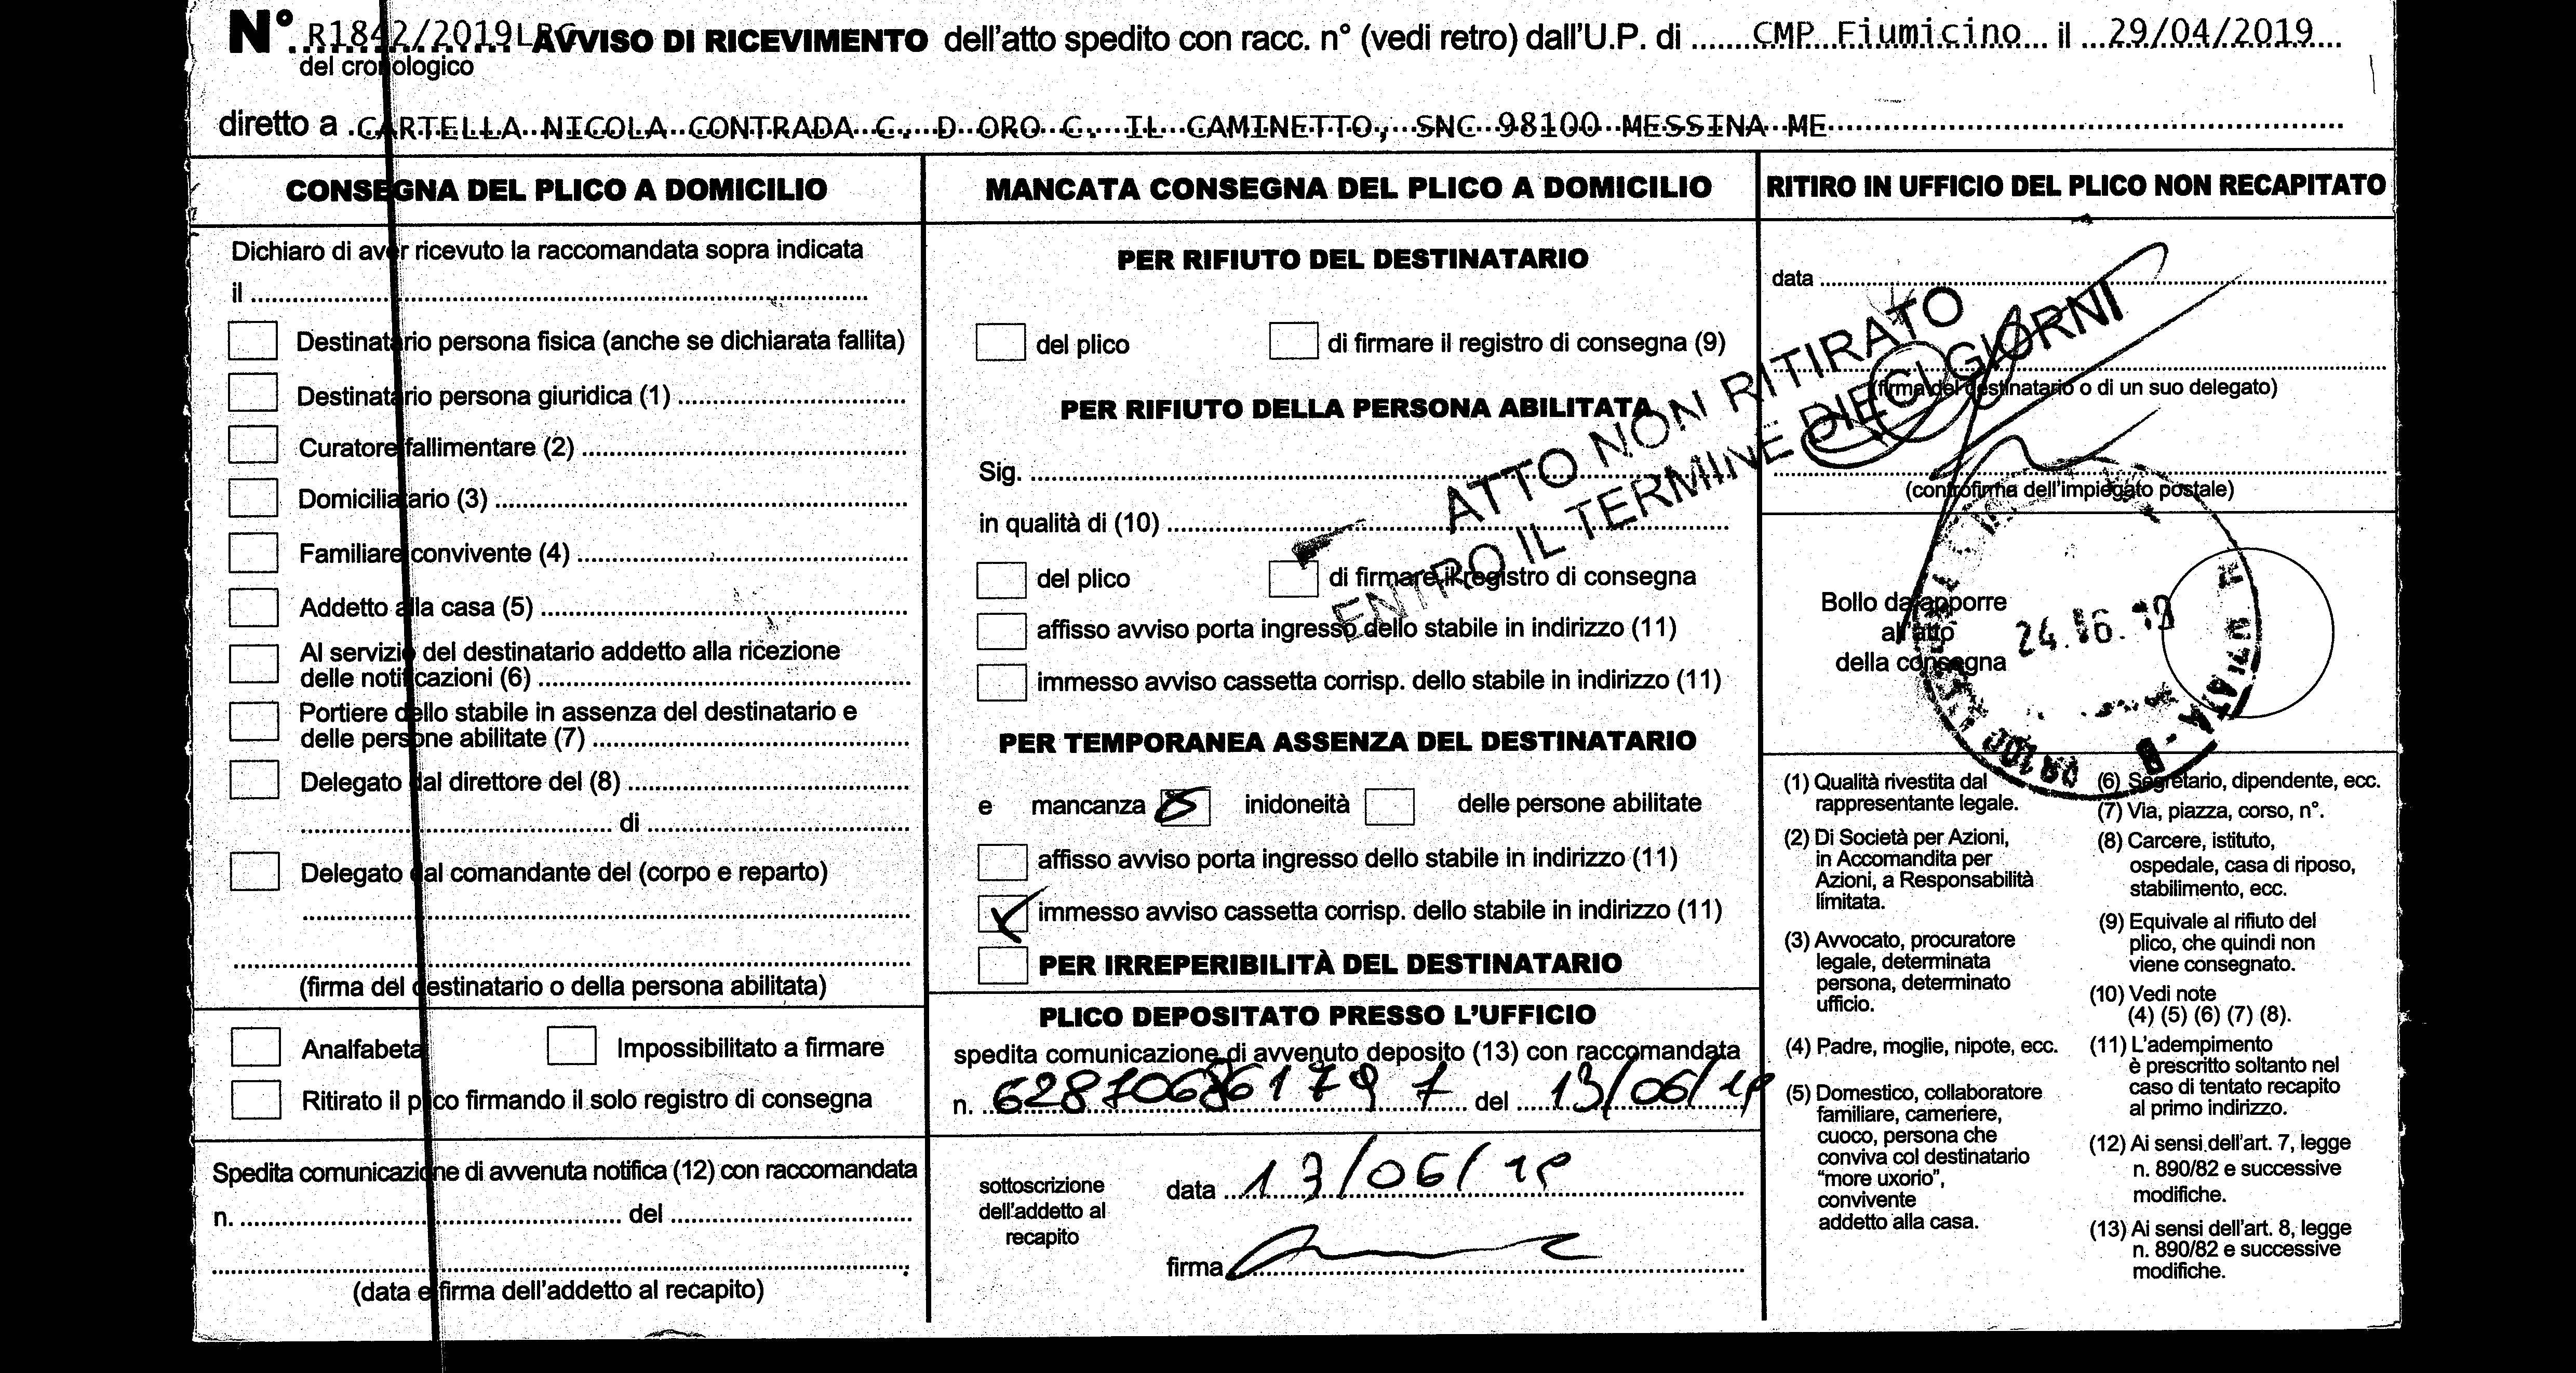 N° R1842/2019LRG AVVISO DI RICEVIMENTO dell'atto spedito con racc. n° (vedi retro) dall'U.P. di CMP Fiumicino il 29/04/2019
del cronologico
diretto a CARTELLA NICOLA CONTRADA C. D ORO C. IL CAMINETTO, SNC 98100 MESSINA ME
CONSEGNA DEL PLICO A DOMICILIO
Dichiaro di aver ricevuto la raccomandata sopra indicata
il
Destinatario persona fisica (anche se dichiarata fallita)
Destinatario persona giuridica (1)
Curatore fallimentare (2)
Domiciliatario (3)
Familiare convivente (4)
Addetto alla casa (5)
Al servizio del destinatario addetto alla ricezione
delle notificazioni (6)
Portiere dello stabile in assenza del destinatario e
delle persone abilitate (7)
Delegato dal direttore del (8)
di
Delegato dal comandante del (corpo e reparto)
(firma del destinatario o della persona abilitata)
Analfabeta Impossibilitato a firmare
Ritirato il plico firmando il solo registro di consegna
Spedita comunicazione di avvenuta notifica (12) con raccomandata
n. del
(data e firma dell'addetto al recapito)
MANCATA CONSEGNA DEL PLICO A DOMICILIO
PER RIFIUTO DEL DESTINATARIO
del plico di firmare il registro di consegna (9)
PER RIFIUTO DELLA PERSONA ABILITATA
Sig.
in qualità di (10)
del plico di firmare il registro di consegna
affisso avviso porta ingresso dello stabile in indirizzo (11)
immesso avviso cassetta corrisp. dello stabile in indirizzo (11)
PER TEMPORANEA ASSENZA DEL DESTINATARIO
e mancanza inidoneità delle persone abilitate
affisso avviso porta ingresso dello stabile in indirizzo (11)
immesso avviso cassetta corrisp. dello stabile in indirizzo (11)
PER IRREPERIBILITÀ DEL DESTINATARIO
PLICO DEPOSITATO PRESSO L'UFFICIO
spedita comunicazione di avvenuto deposito (13) con raccomandata
n. del 13/06/19
sottoscrizione
dell'addetto al
recapito
data 13/06/19
firma
ATTO NON RITIRATO
ENTRO IL TERMINE DIECI GIORNI
RITIRO IN UFFICIO DEL PLICO NON RECAPITATO
data
(firma del destinatario o di un suo delegato)
(controfirma dell'impiegato postale)
Bollo da apporre
all'atto
della consegna
24.06.19
(1) Qualità rivestita dal
rappresentante legale.
(2) Di Società per Azioni,
in Accomandita per
Azioni, a Responsabilità
limitata.
(3) Avvocato, procuratore
legale, determinata
persona, determinato
ufficio.
(4) Padre, moglie, nipote, ecc.
(5) Domestico, collaboratore
familiare, cameriere,
cuoco, persona che
conviva col destinatario
"more uxorio",
convivente
addetto alla casa.
(6) Segretario, dipendente, ecc.
(7) Via, piazza, corso, n°.
(8) Carcere, istituto,
ospedale, casa di riposo,
stabilimento, ecc.
(9) Equivale al rifiuto del
plico, che quindi non
viene consegnato.
(10) Vedi note
(4) (5) (6) (7) (8).
(11) L'adempimento
è prescritto soltanto nel
caso di tentato recapito
al primo indirizzo.
(12) Ai sensi dell'art. 7, legge
n. 890/82 e successive
modifiche.
(13) Ai sensi dell'art. 8, legge
n. 890/82 e successive
modifiche.